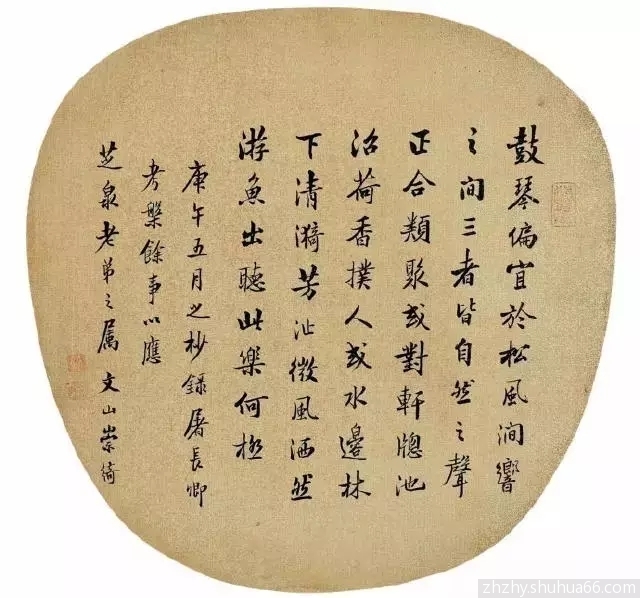 鼓琴偏宜於松風澗響
之間三者皆自然之聲
正合類聚或對軒牕池
沼荷香撲人或水邊林
下清漪芳沚微風洒然
游魚出聽此樂何極
庚午五月之杪錄屠長卿
考槃餘事以應
芝泉老弟之属 文山崇綺
zhzhy.shuhua66.com